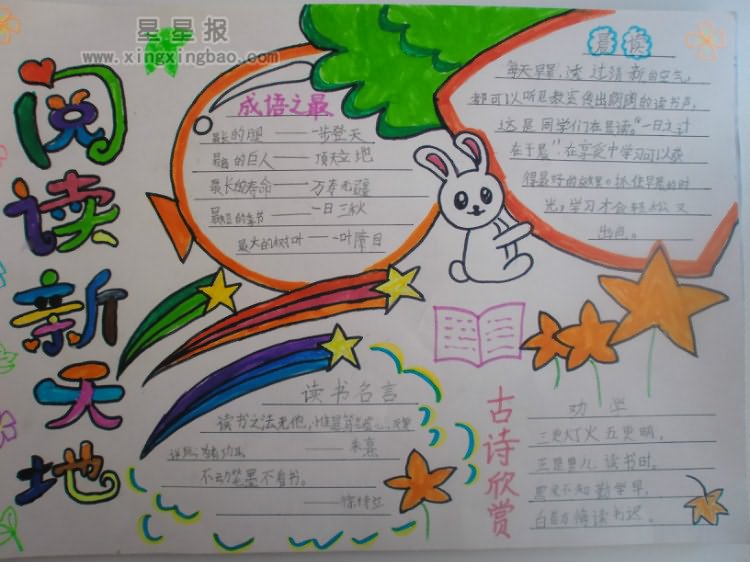 星星报
www.xingxingbao.com
阅读新天地
成语之最
最长的腿——一步登天
最高的巨人——顶天立地
最长的寿命——万寿无疆
最短的季节——一日三秋
最大的树叶——一叶障目
晨读
每天早晨，透过清新的空气，
都可以听见教室传出朗朗的读书声，
这是同学们在晨读。"一日之计
在于晨"。在享受中学习可以获
得最好的效果。抓住早晨的时
光，学习才会轻松又
出色。
读书名言
读书之法无他，
——朱熹
不动笔墨不看书。
——徐特立
古诗欣赏
劝学
三更灯火五更明，
正是男儿读书时。
黑发不知勤学早，
白首方悔读书迟。